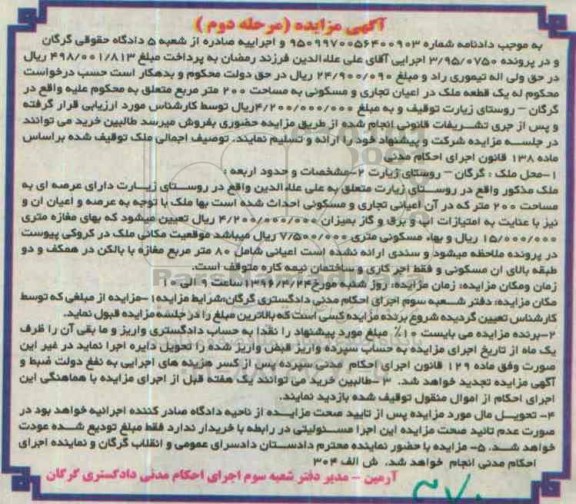 آگهی مزایده (مرحله دوم)
به موجب دادنامه شماره ۹۵۰۹۹۷۰۰۵۶۴۰۰۹۰۳ و اجراییه صادره از شعبه ۵ دادگاه حقوقی گرگان
و در پرونده ۳/۹۵/۰۷۵۰ اجرایی آقای علی علاءالدین فرزند رمضان به پرداخت مبلغ ۴۹۸/۰۰۱/۸۱۳ ریال
در حق ولی اله تیموری راد و مبلغ ۲۴/۹۰۰/۰۹۰ ریال در حق دولت محکوم و بدهکار است حسب درخواست
محکوم له یک قطعه ملک در اعیان تجاری و مسکونی به مساحت ۲۰۰ متر مربع متعلق به محکوم علیه واقع در
گرگان – روستای زیارت توقیف و به مبلغ ۴/۲۰۰/۰۰۰/۰۰۰ریال توسط کارشناس مورد ارزیابی قرار گرفته
و پس از جری تشریفات قانونی انجام شده از طریق مزایده حضوری بفروش میرسد طالبین خرید می توانند
در جلسه مزایده شرکت و پیشنهاد خود را ارائه و تسلیم نمایند. توصیف اجمالی ملک توقیف شده براساس
ماده ۱۳۸ قانون اجرای احکام مدنی
۱–محل ملک : گرگان – روستای زیارت ۲–مشخصات و حدود اربعه :
ملک مذکور واقع در روستای زیارت متعلق به علی علاءالدین واقع در روستای زیارت دارای عرصه ای به
مساحت ۲۰۰ متر که در آن اعیانی تجاری و مسکونی احداث شده است بها ملک با توجه به عرصه و اعیان ان و
نیز با عنایت به امتیازات اب و برق و گاز بمیزان ۴/۲۰۰/۰۰۰/۰۰۰ ریال تعیین میشود که بهای مغازه متری
۱۵/۰۰۰/۰۰۰ ریال و بهاء مسکونی متری ۷/۵۰۰/۰۰۰ ریال میباشد موقعیت مکانی ملک در کروکی پیوست
در پرونده ملاحظه میشود و سندی ارائه نشده است اعیانی شامل ۸۰ متر مربع مغازه با بالکن در همکف و دو
طبقه بالای ان مسکونی و فقط اجر کاری و ساختمان نیمه کاره متوقف است.
زمان ومکان مزایده: زمان مزایده: روز شنبه مورخ ۱۳۹۶/۴/۲۴ ساعت ۹ الی ۱۰
مکان مزایده: دفتر شعبه سوم اجرای احکام مدنی دادگستری گرگان.شرایط مزایده: ۱–مزایده از مبلغی که توسط
کارشناس تعیین گردیده شروع برنده مزایده کسی است که بالاترین مبلغ را در جلسه مزایده قبول نماید.
۲–برنده مزایده می بایست ۱۰٪ مبلغ مورد پیشنهاد را نقدا به حساب دادگستری واریز و ما بقی آن را ظرف
یک ماه از تاریخ اجرای مزایده به حساب سپرده واریز قبض واریز شده را تحویل دایره اجرا نماید در غیر این
صورت وفق ماده ۱۲۹ قانون اجرای احکام مدنی سپرده پس از کسر هزینه های اجرایی به نفع دولت ضبط و
آگهی مزایده تجدید خواهد شد. ۳–طالبین خرید می توانند یک هفته قبل از اجرای مزایده با هماهنگی این
اجرای احکام از اموال منقول توقیف شده بازدید نمایند.
۴– تحویل مال مورد مزایده پس از تایید صحت مزایده از ناحیه دادگاه صادر کننده اجرائیه خواهد بود در
صورت عدم تائید صحت مزایده این اجرا مسئولیتی در رابطه با خریدار ندارد فقط مبلغ تودیع شده عودت
خواهد شد. ۵– مزایده با حضور نماینده محترم دادستان دادسرای عمومی و انقلاب گرگان و نماینده اجرای
احکام مدنی انجام خواهد شد. ش الف ۳۰۴
آرمین – مدیر دفتر شعبه سوم اجرای احکام مدنی دادگستری گرگان